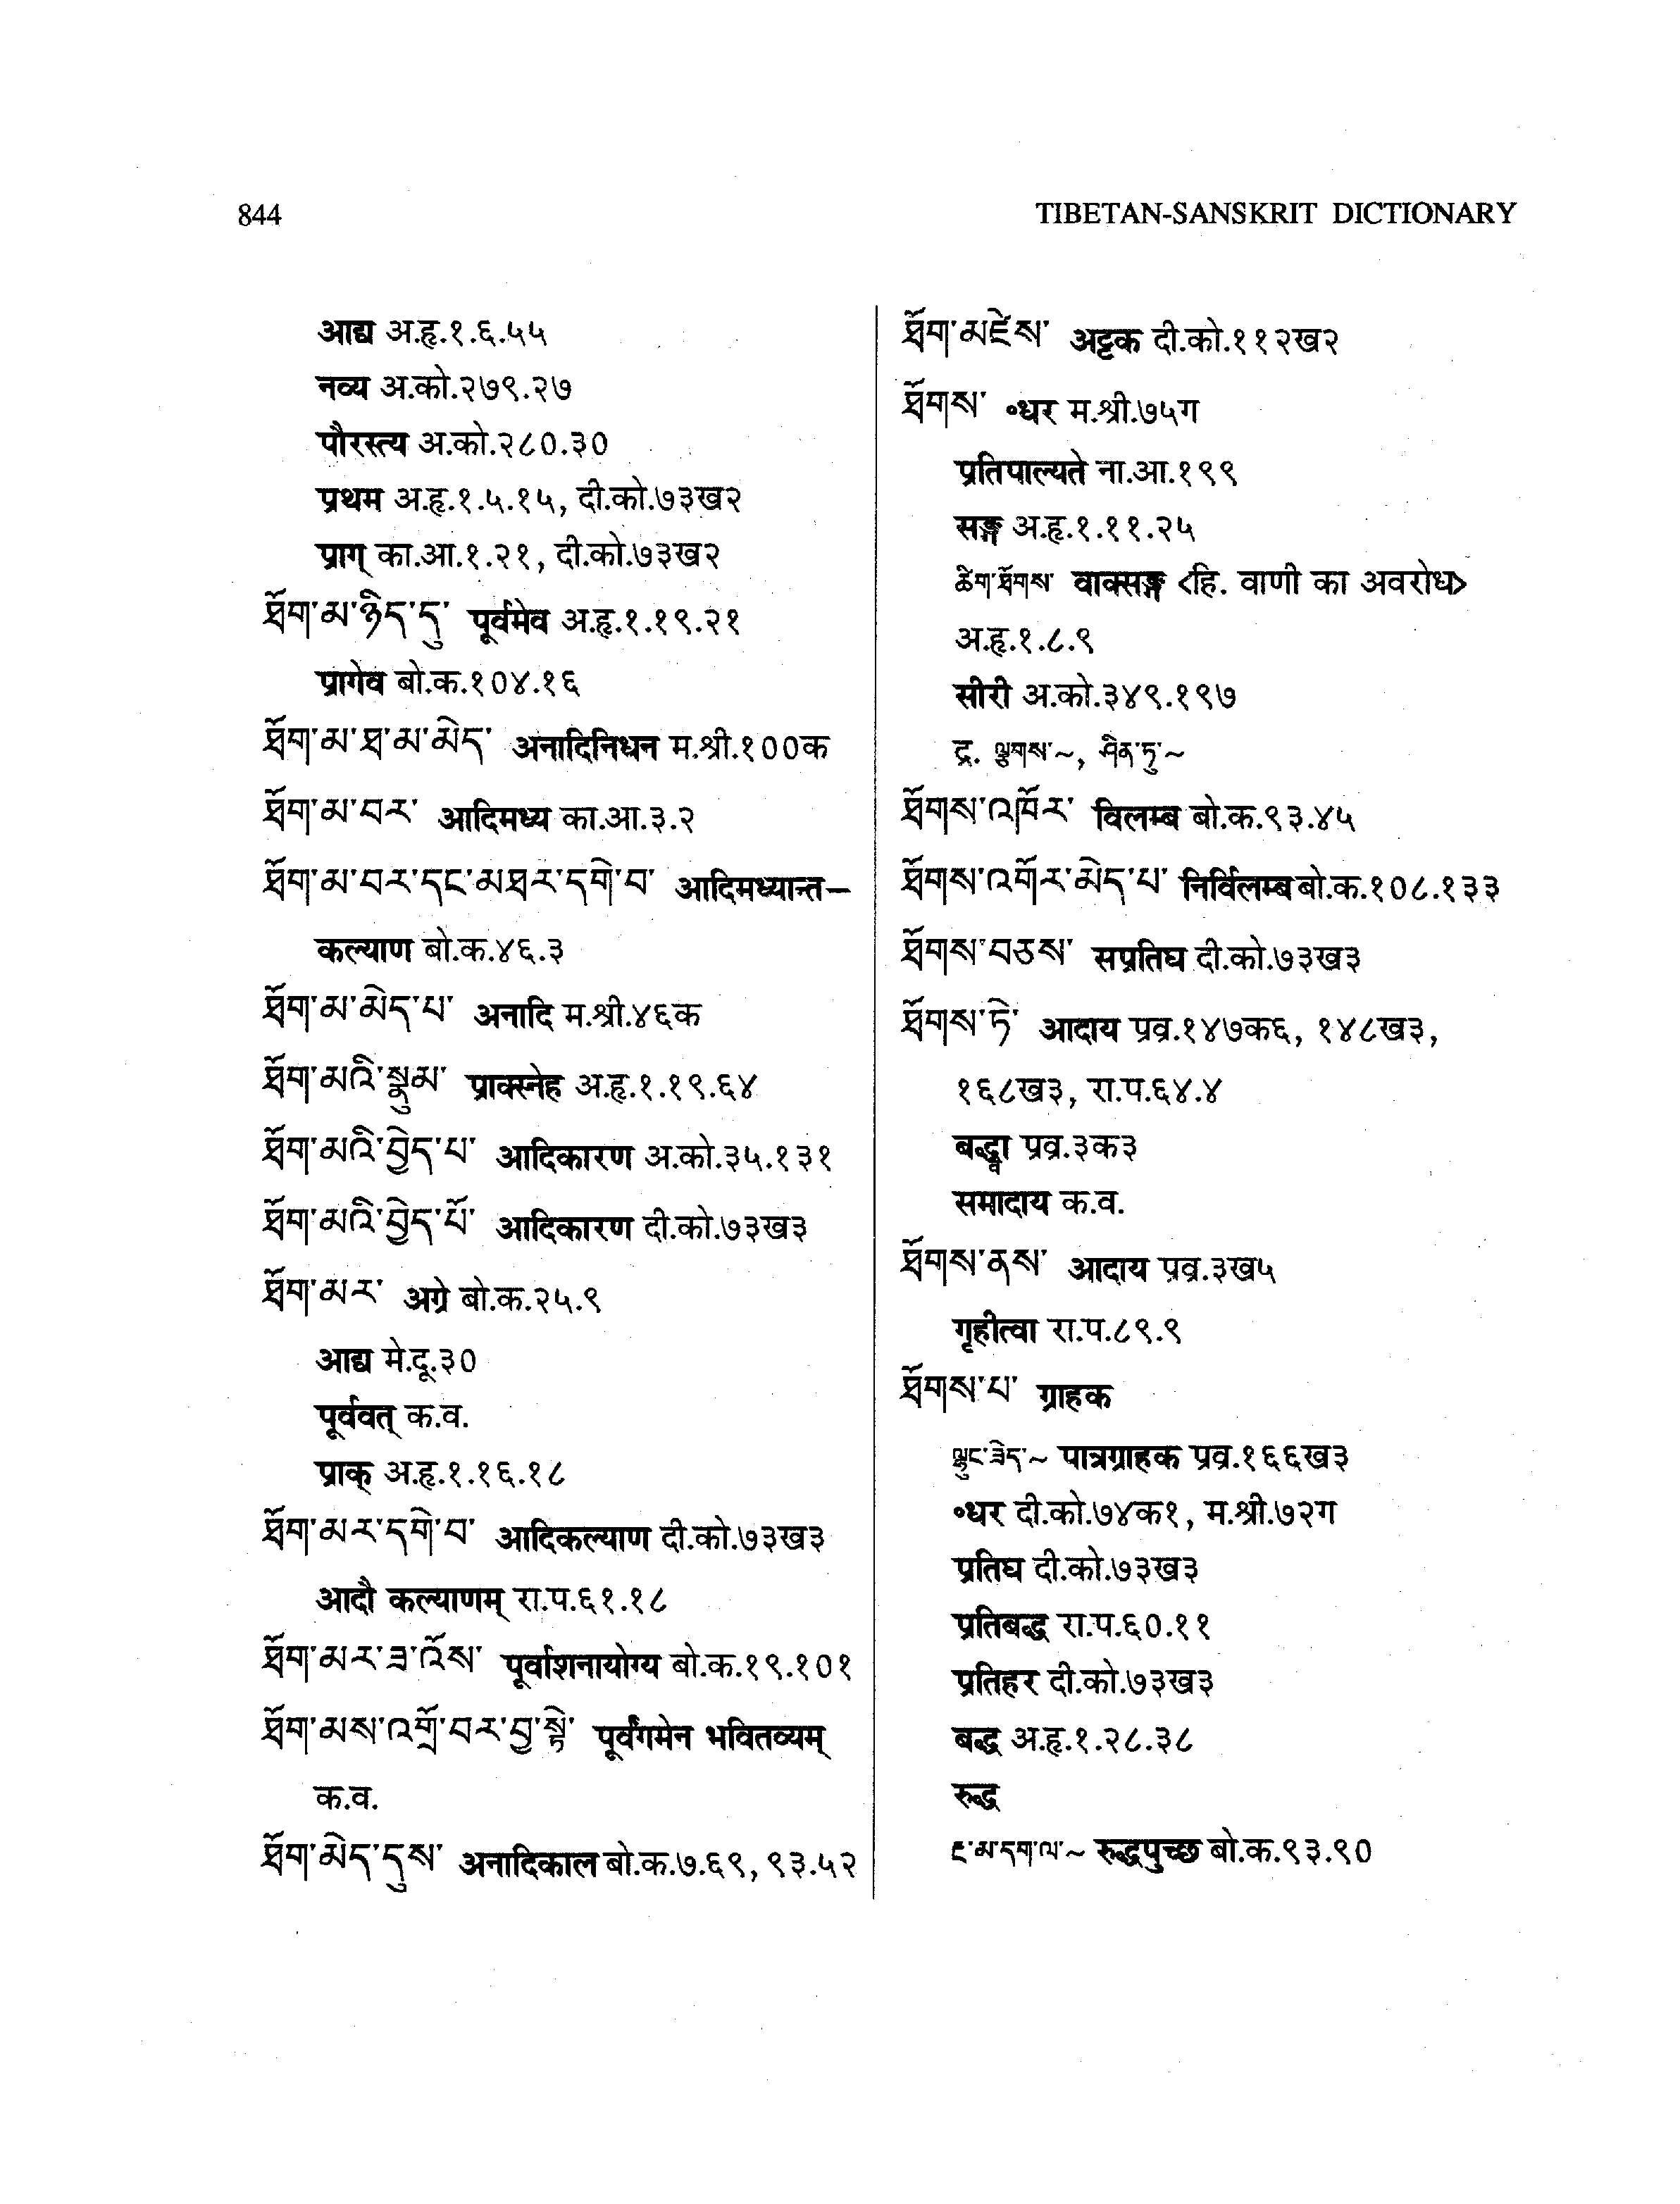 844
TIBETAN-SANSKRIT DICTIONARY
आद्य अ.हृ.१.६.५५
नव्य अ.को.२७९.२७
पौरस्त्य अ.को.२८०.३०
प्रथम अ.हृ.१.५.१५, दी.को.७३ख२
प्राग् का.आ.१.२१, दी.को.७३ख२
ཐོག་མ་ཉིད་དུ་ पूर्वमेव अ.हृ.१.१९.२१
प्रागेव बो.क.१०४.१६
ཐོག་མ་ཐ་མ་མེད་ अनादिनिधन म.श्री.१००क
ཐོག་མ་བར་ आदिमध्य का.आ.३.२
ཐོག་མ་བར་དང་མཐར་དགེ་བ་ आदिमध्यान्त–
कल्याण बो.क.४६.३
ཐོག་མ་མེད་པ་ अनादि म.श्री.४६क
ཐོག་མའི་སྣུམ་ प्राक्स्नेह अ.हृ.१.१९.६४
ཐོག་མའི་བྱེད་པ་ आदिकारण अ.को.३५.१३१
ཐོག་མའི་བྱེད་པོ་ आदिकारण दी.को.७३ख३
ཐོག་མར་ अग्रे बो.क.२५.९
आद्य मे.दू.३०
पूर्ववत् क.व.
प्राक् अ.हृ.१.१६.१८
ཐོག་མར་དགེ་བ་ आदिकल्याण दी.को.७३ख३
आदौ कल्याणम् रा.प.६१.१८
ཐོག་མར་ཟ་འོས་ पूर्वाशनायोग्य बो.क.१९.१०१
ཐོག་མས་འགྲོ་བར་བྱ་སྟེ་ पूर्वंगमेन भवितव्यम्
क.व.
ཐོག་མེད་དུས་ अनादिकाल बो.क.७.६९, ९३.५२
ཐོག་མཛེས་ अट्टक दी.को.११२ख२
ཐོགས་ ॰धर म.श्री.७५ग
प्रतिपाल्यते ना.आ.१९९
सङ्ग अ.हृ.१.११.२५
ཚིག་ཐོགས་ वाक्सङ्ग <हि. वाणी का अवरोध>
अ.हृ.१.८.९
सीरी अ.को.३४९.१९७
द्र. ལྕགས་~, ཤིན་ཏུ་~
ཐོགས་འཁོར་ विलम्ब बो.क.९३.४५
ཐོགས་འགོར་མེད་པ་ निर्विलम्ब बो.क.१०८.१३३
ཐོགས་བཅས་ सप्रतिघ दी.को.७३ख३
ཐོགས་ཏེ་ आदाय प्रव्र.१४७क६, १४८ख३,
१६८ख३, रा.प.६४.४
बद्ध्वा प्रव्र.३क३
समादाय क.व.
ཐོགས་ནས་ आदाय प्रव्र.३ख५
गृहीत्वा रा.प.८९.९
ཐོགས་པ་ ग्राहक
ལྷུང་ཟེད་~ पात्रग्राहक प्रव्र.१६६ख३
॰धर दी.को.७४क१, म.श्री.७२ग
प्रतिघ दी.को.७३ख३
प्रतिबद्ध रा.प.६०.११
प्रतिहर दी.को.७३ख३
बद्ध अ.हृ.१.२८.३८
रुद्ध
རྔ་མ་དག་ལ་~ रुद्धपुच्छ बो.क.९३.९०